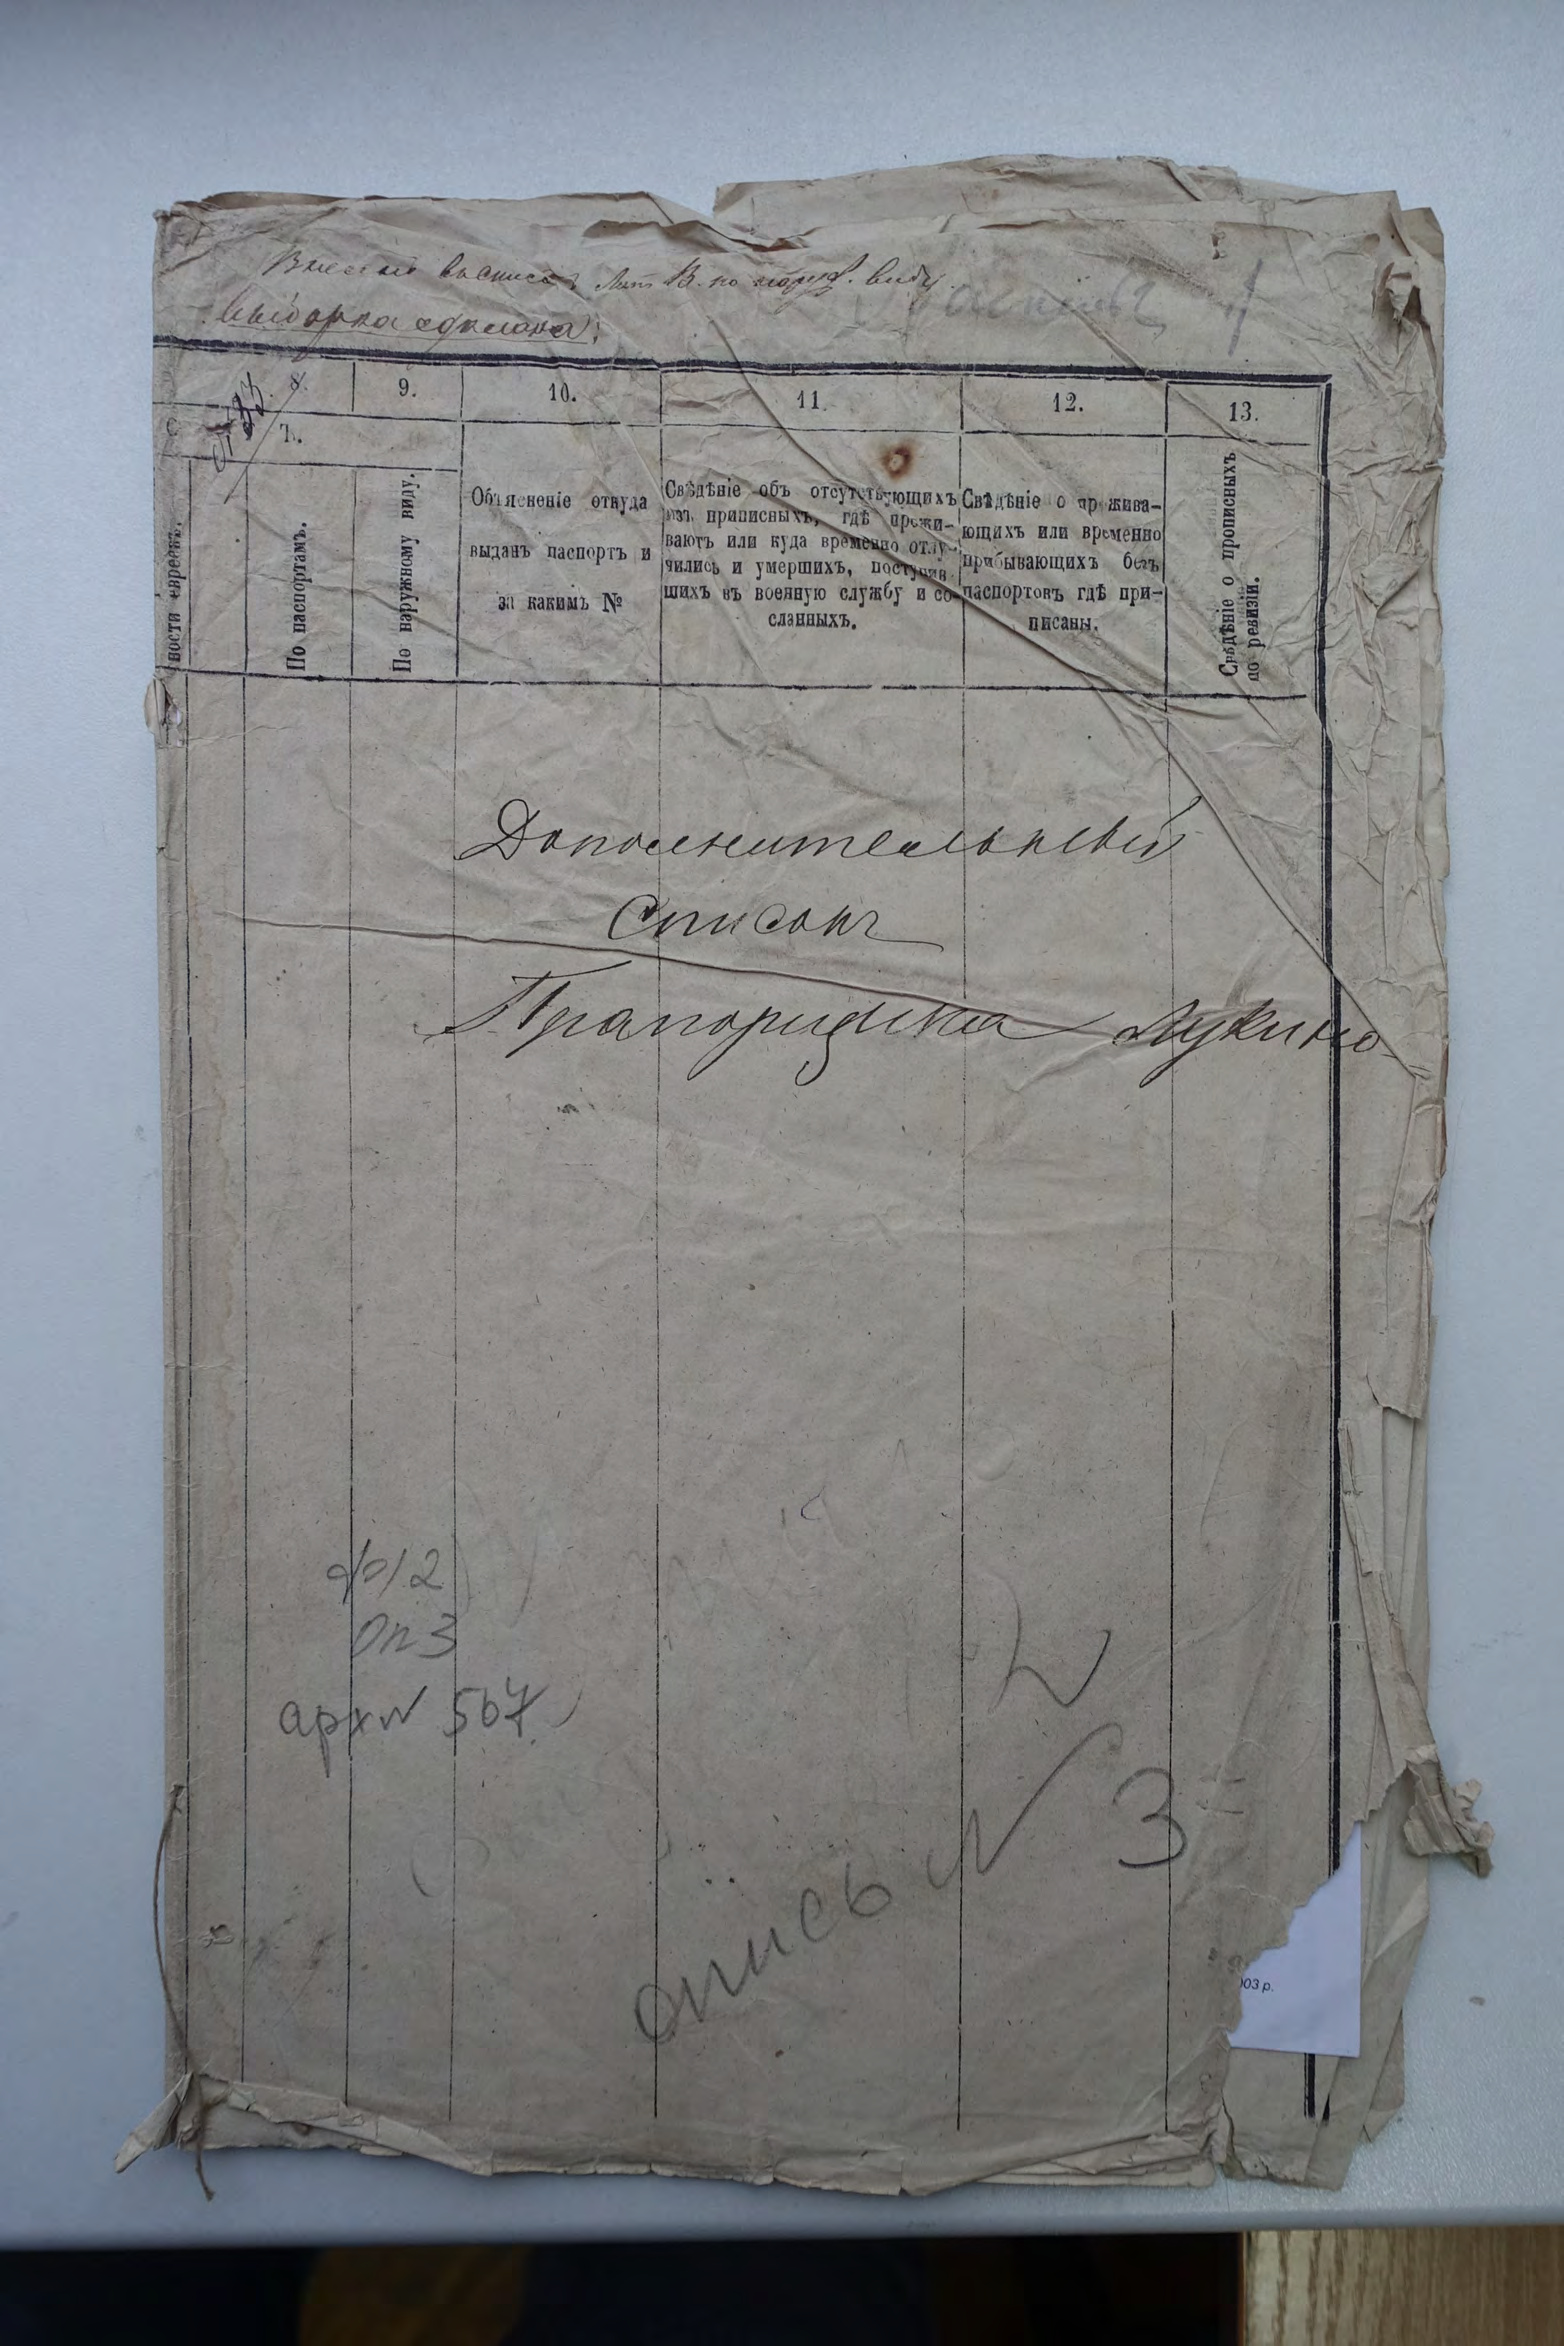 Внесено въ списокъ Лит В. по наруж. виду.
Выборка сделана.
8.
9.
10.
11.
12.
13.
7.
ности евреевъ.
По паспортамъ.
По наружному виду.
Объясненіе откуда
выданъ паспортъ и
за какимъ №
Свѣдѣніе объ отсутствующихъ
изъ приписныхъ, гдѣ прожи-
ваютъ или куда временно отлу-
чились и умершихъ, поступив-
шихъ въ военную службу и со-
сланныхъ.
Свѣдѣніе о прожива-
ющихъ или временно
прибывающихъ безъ
паспортовъ гдѣ при-
писаны.
Свѣдѣніе о прописныхъ
по ревизіи.
Дополнительный
Списокъ
Прапорщика Лукино
ф 12
Оп 3
арх № 567
опись № 3
003 р.